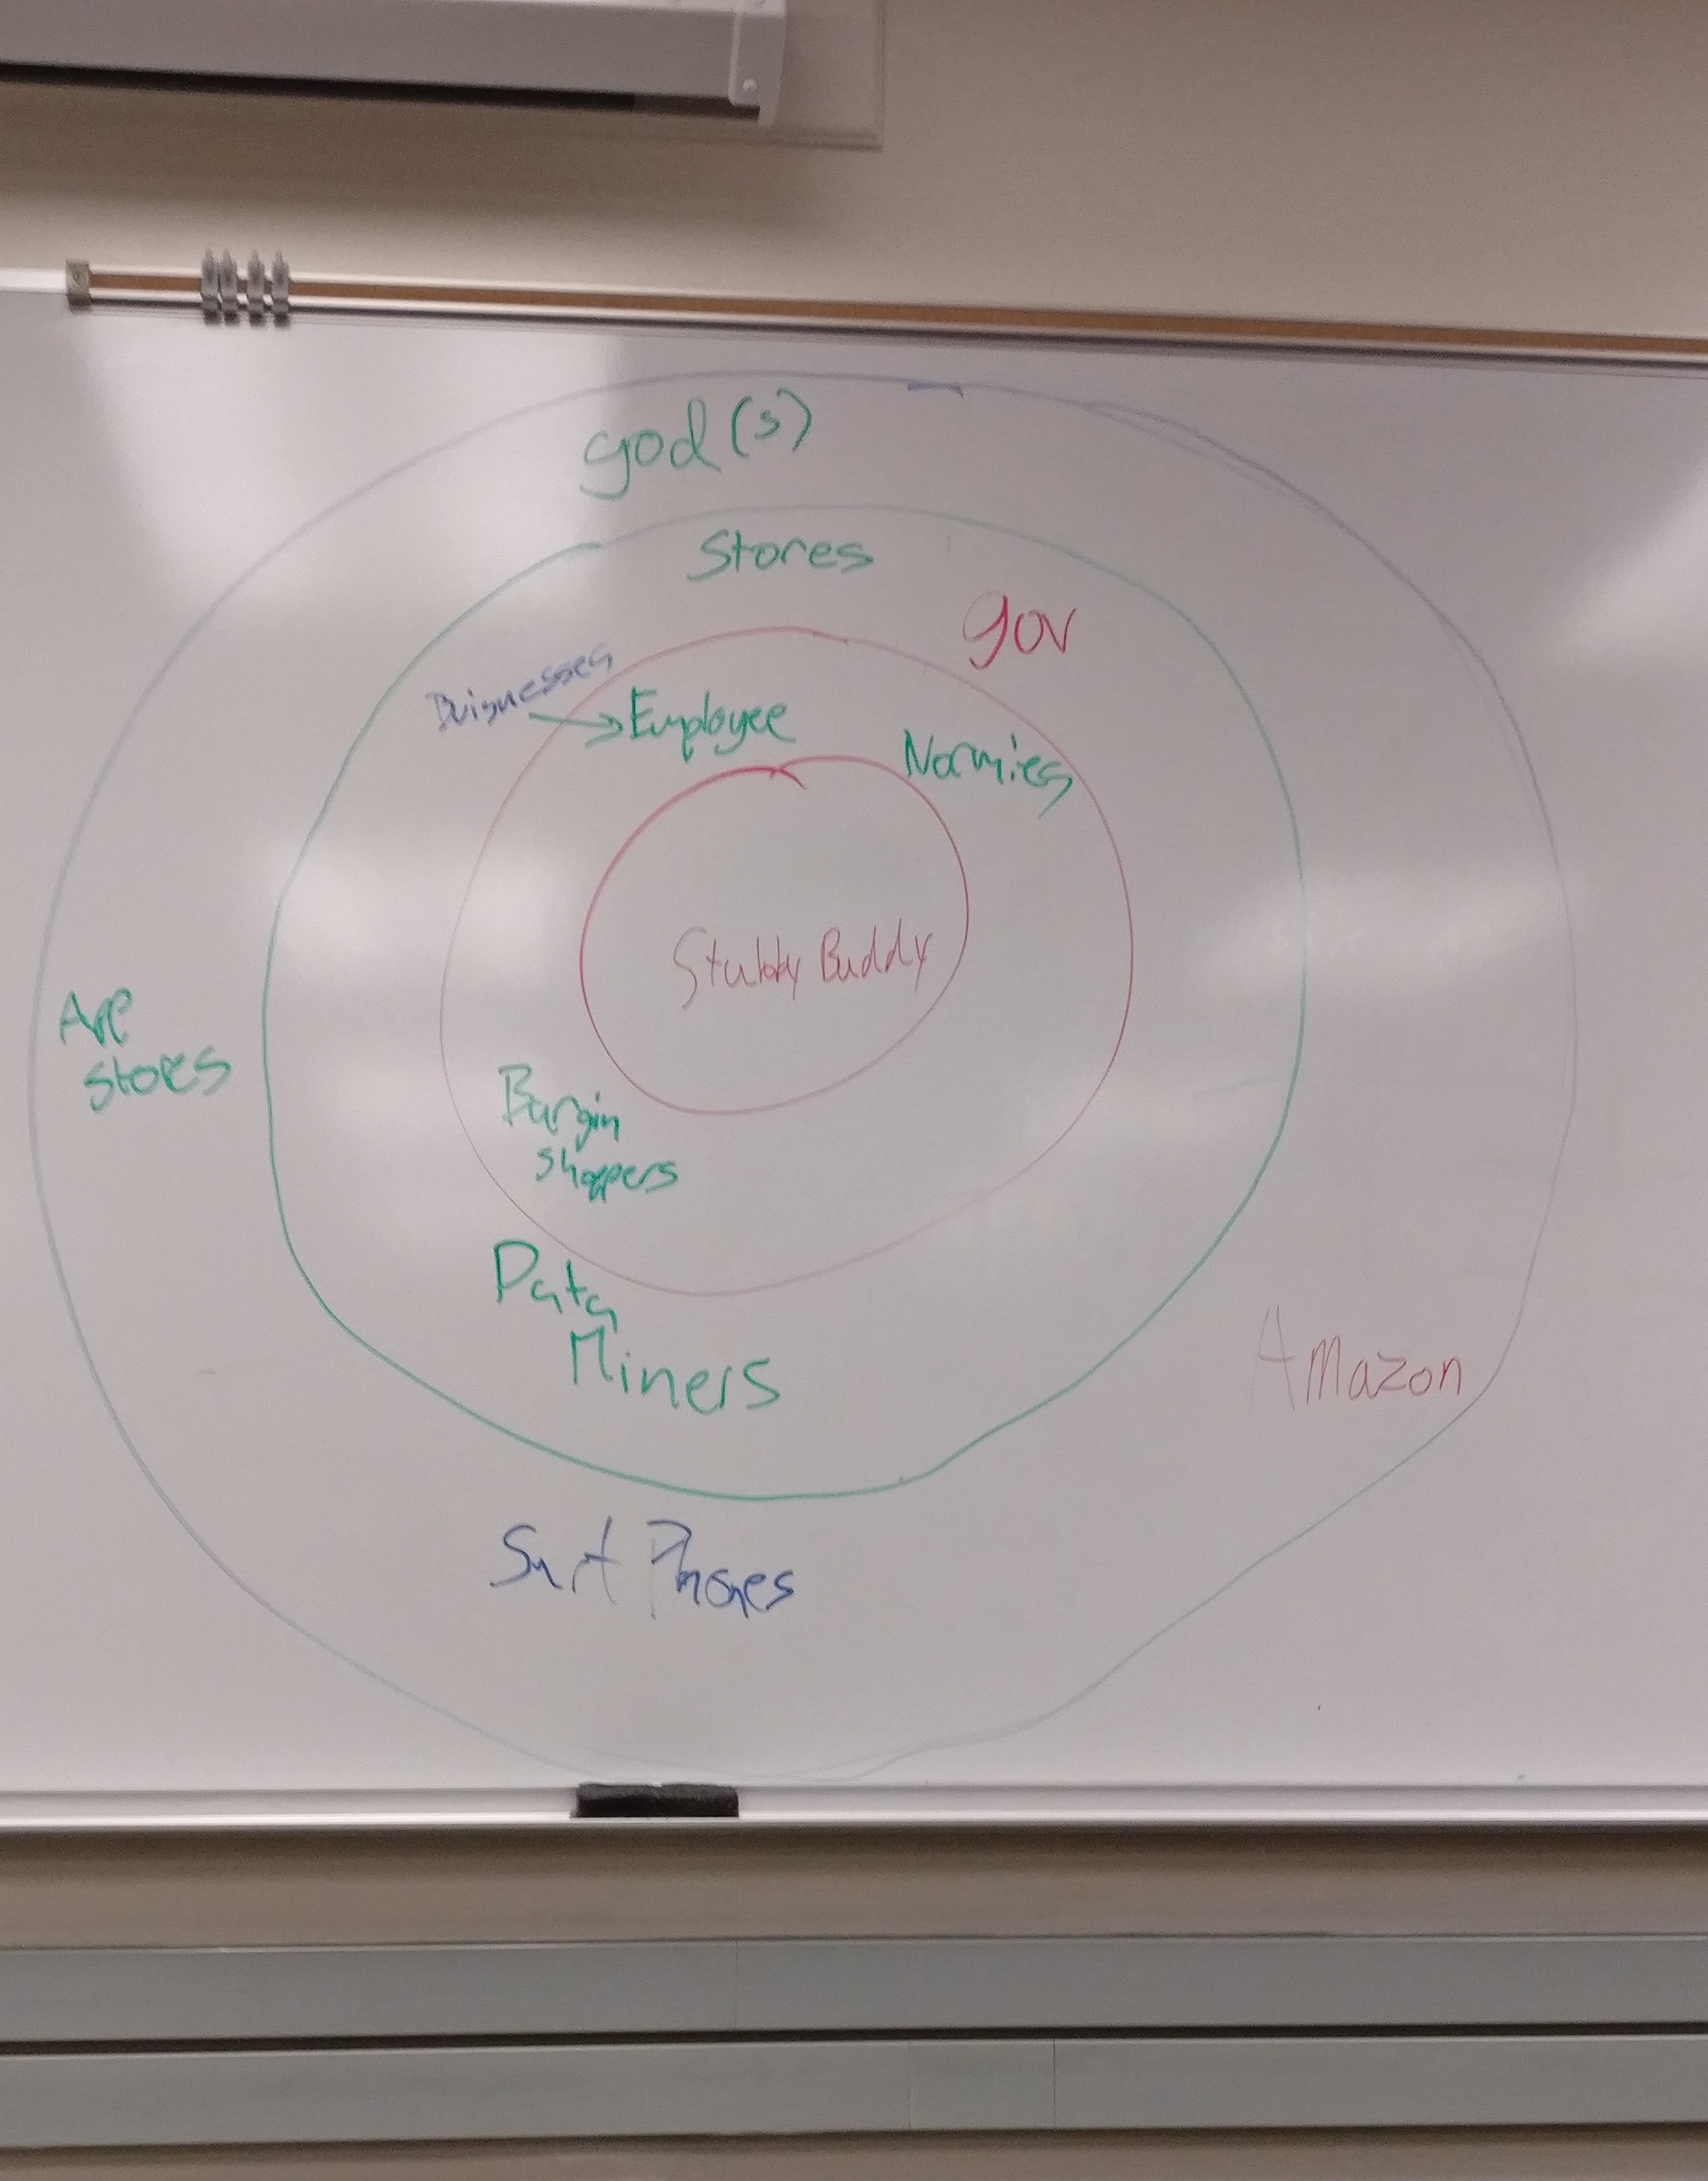 god(s)
Stores
gov
Buisnesses
Employee
Normies
Stubby Buddy
App
stores
Bargin
shoppers
Data
Miners
Amazon
Smrt Phones